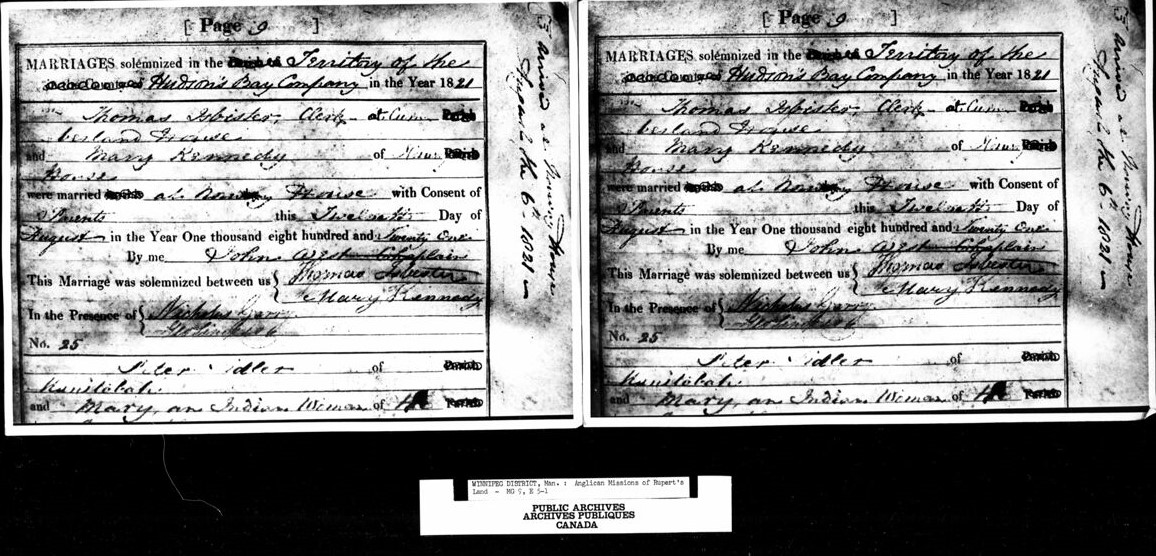 [ Page 9 ]
MARRIAGES solemnized in the Territory of the
Hudson's Bay Company in the Year 1821
Thomas Isbister, Clerk at Cum
berland House
and Mary Kennedy of Parish
House
were married at House with Consent of
Parents this Twelveth Day of
August in the Year One thousand eight hundred and Twenty One
By me John West Chaplain
This Marriage was solemnized between us { Thomas Isbester
Mary Kennedy
In the Presence of { Nicholas Garry
No. 25
Peter Fidler of Parish
Manitobah
and Mary, an Indian Woman of Parish
August the 6th 1821
[ Page 9 ]
MARRIAGES solemnized in the Territory of the
Hudson's Bay Company in the Year 1821
Thomas Isbister, Clerk at Cum
berland House
and Mary Kennedy of Parish
House
were married at House with Consent of
Parents this Twelveth Day of
August in the Year One thousand eight hundred and Twenty One
By me John West Chaplain
This Marriage was solemnized between us { Thomas Isbester
Mary Kennedy
In the Presence of { Nicholas Garry
No. 25
Peter Fidler of Parish
Manitobah
and Mary, an Indian Woman of Parish
August the 6th 1821
WINNIPEG DISTRICT, Man. : Anglican Missions of Rupert's
Land - MG 9, E 5-1
PUBLIC ARCHIVES
ARCHIVES PUBLIQUES
CANADA